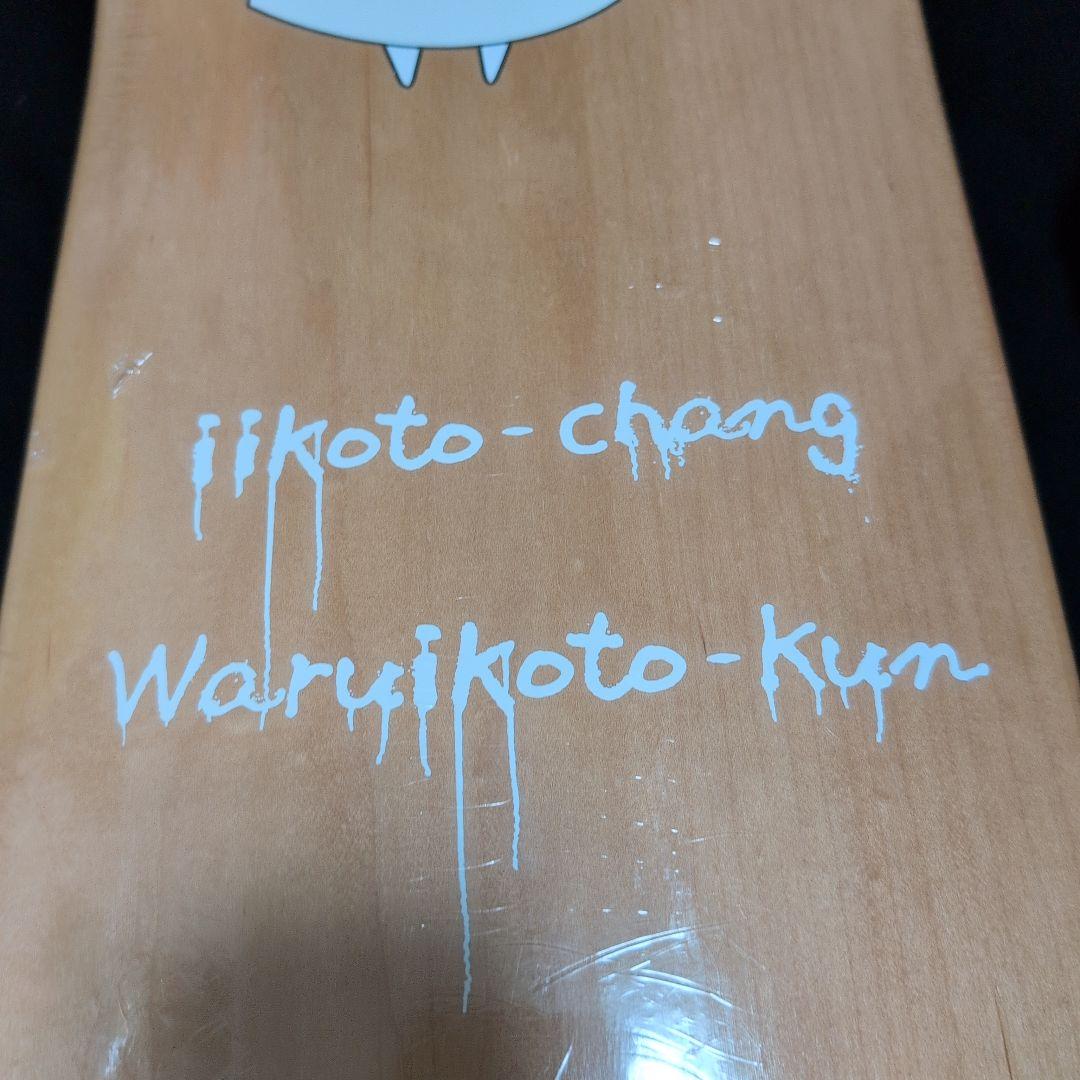 iikoto-chang
Waruikoto-kun